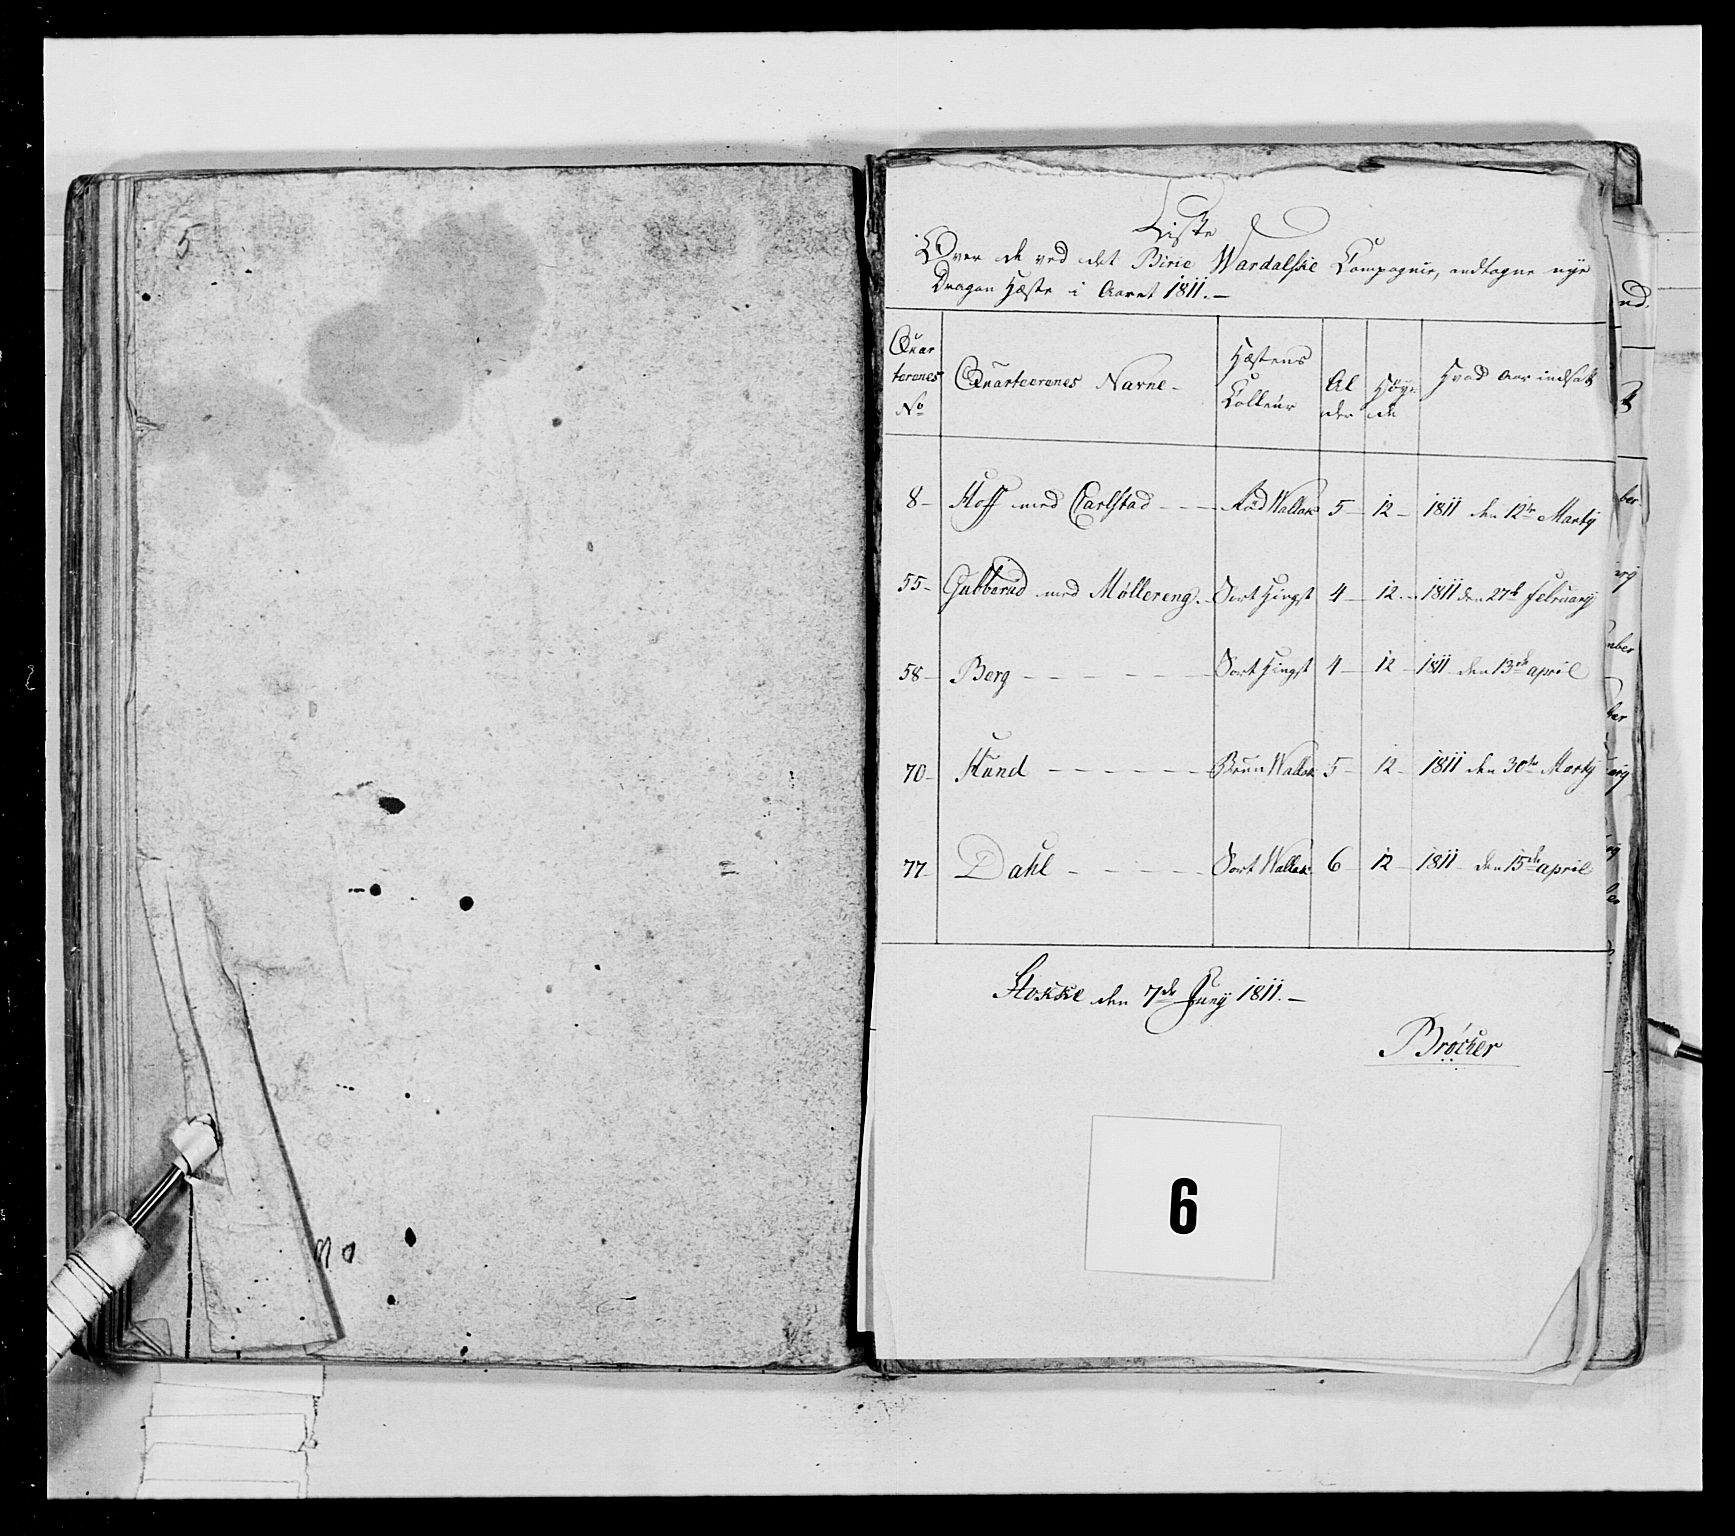 5
Liste
Over de ved det Birie Wardalske Compagnie, andtagne nye
Dragon Hæste i Aaret 1811.—
Quar
terenes
No
Quarteerenes Navne -
Hæstens
Colleur
Al
der
Høy
de
Hvad Aar indsat
8 - Hoff med Carlstad - - - Rød Wallak 5 - 12 - 1811 den 12te Marty
55 - Gubberud med Møllereng. - Sort Hingst 4 - 12. - 1811 den 27de February
58 - Berg - - - - - - Sort Hingst 4 - 12 - 1811 den 13de april
70 - Hund - - - - - - Bruun Wallak 5 - 12 - 1811 den 30te Marty
77 - Dahl - - - - - Sort Wallak 6 - 12 - 1811 den 15de april
Stokke den 7de Juny 1811. —
Brøcker
6